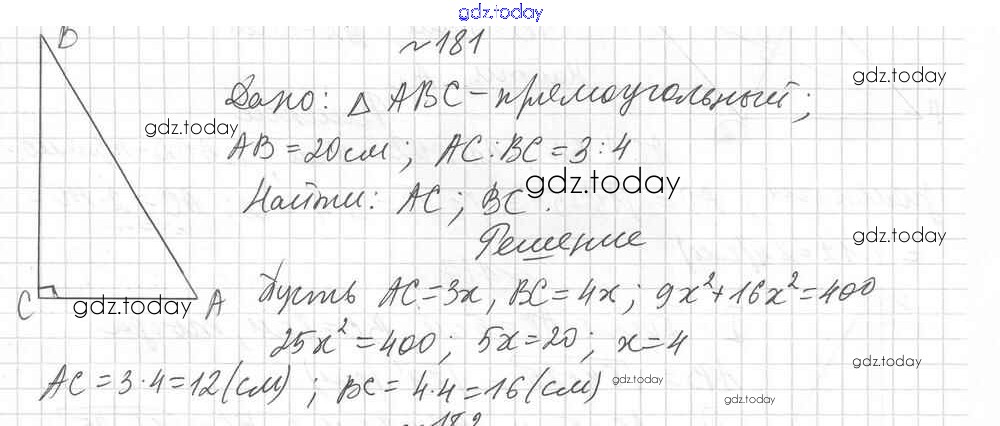 gdz.today
В
~181
gdz.today
Дано: △ ABC - прямоугольный;
gdz.today
AB = 20 см; AC:BC = 3:4
gdz.today
Найти: AC; BC.
gdz.today
Решение
C gdz.today A
Пусть AC = 3x, BC = 4x; 9x²+16x² = 400
25x² = 400; 5x = 20; x = 4
gdz.today
AC = 3·4 = 12 (см); BC = 4·4 = 16 (см)
gdz.today
gdz.today